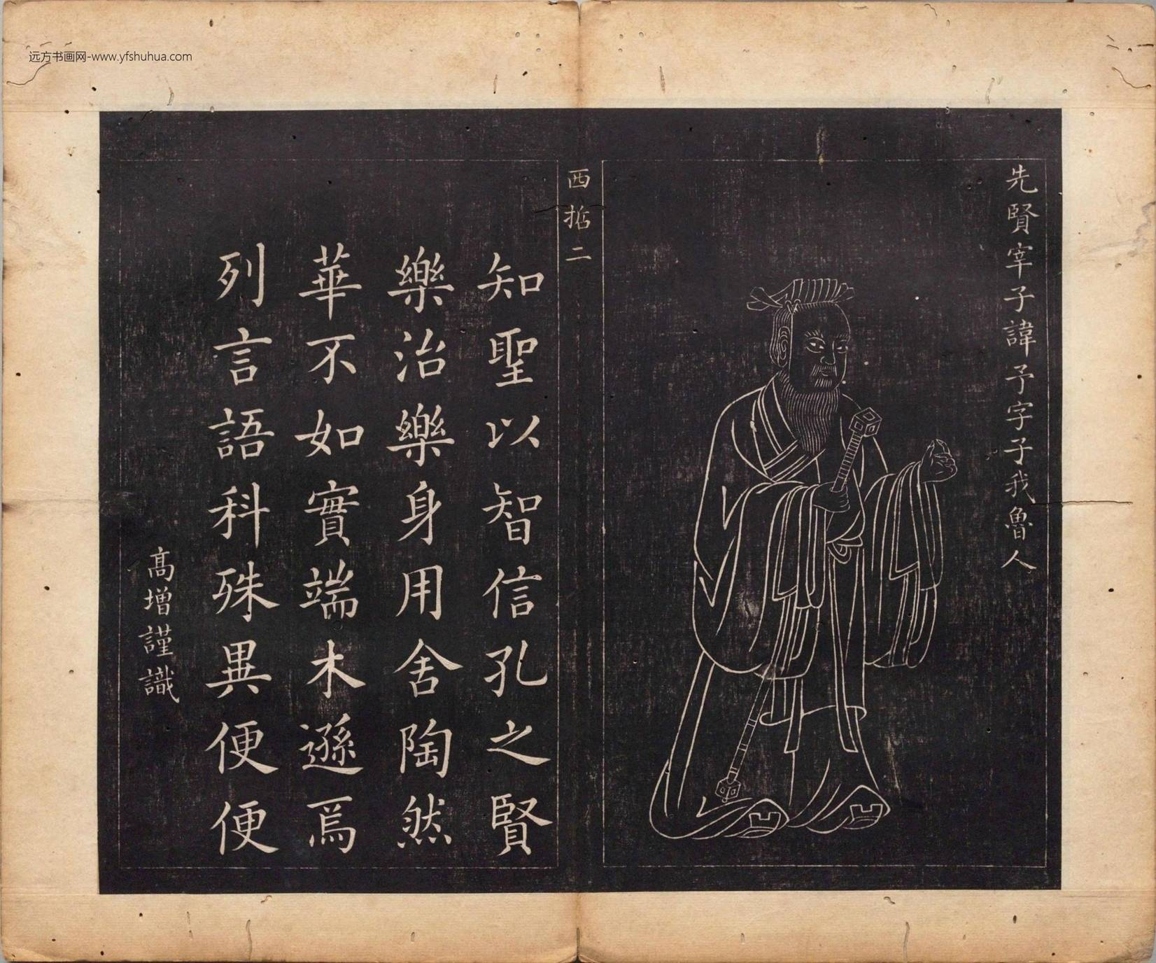 远方书画网-www.yfshuhua.com
先賢宰子諱予字子我魯人
西哲二
知聖以智信孔之賢
樂治樂身用舍陶然
華不如實端木遜焉
列言語科殊異便便
高增謹識